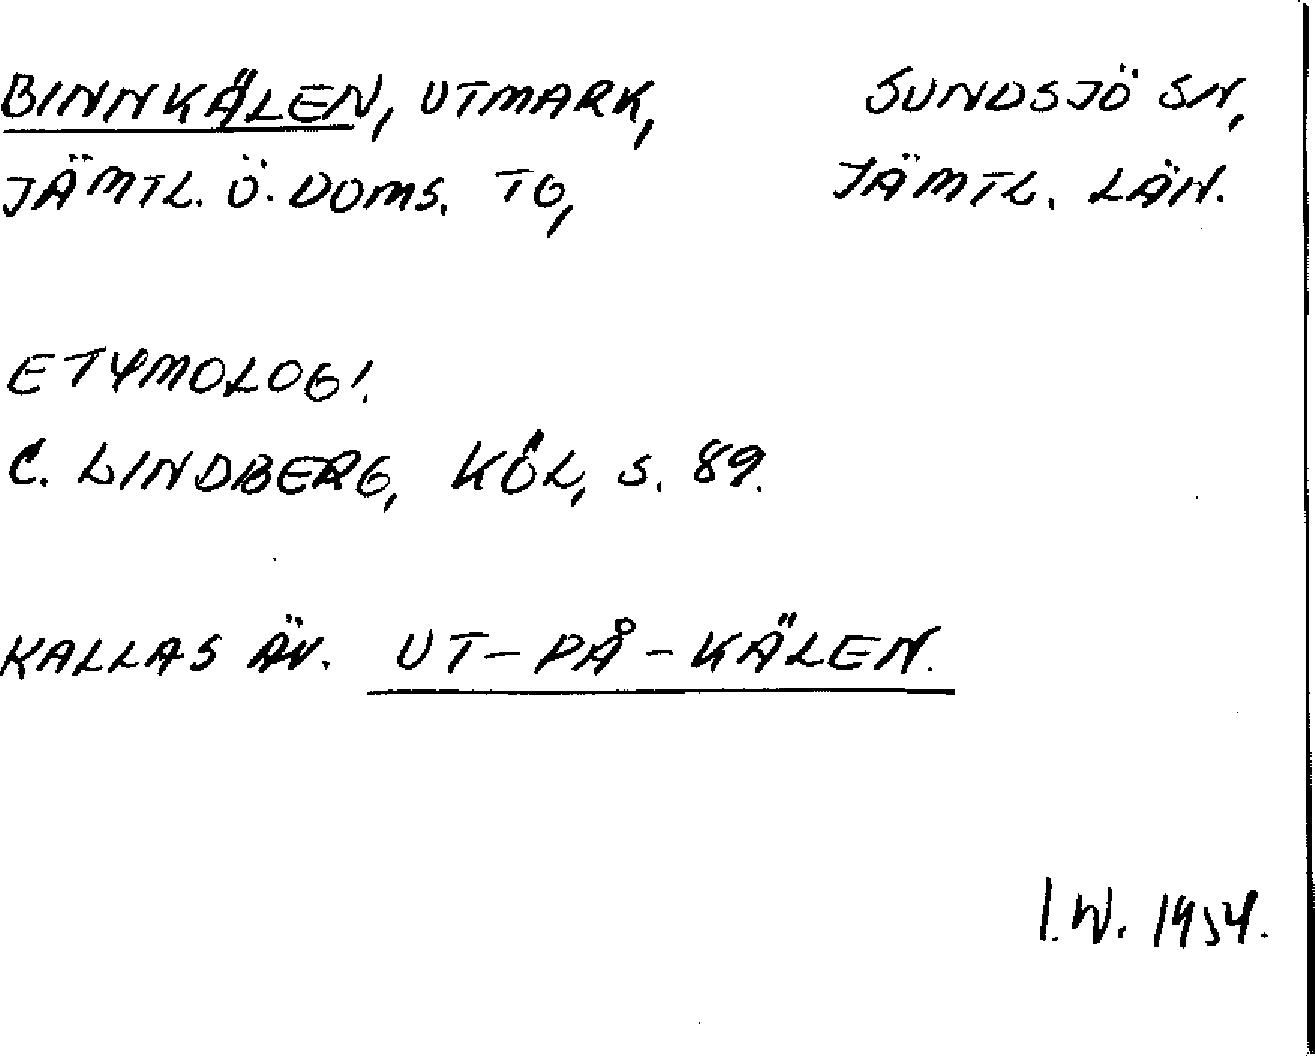 BINNKÄLEN, UTMARK, SUNDSJÖ SN,
JÄMTL. Ö. DOMS. TG, JÄMTL. LÄN.
ETYMOLOGI.
C. LINDBERG, KÖL, S. 89.
KALLAS ÄV. UT-PÅ-KÄLEN.
I.W. 1954.